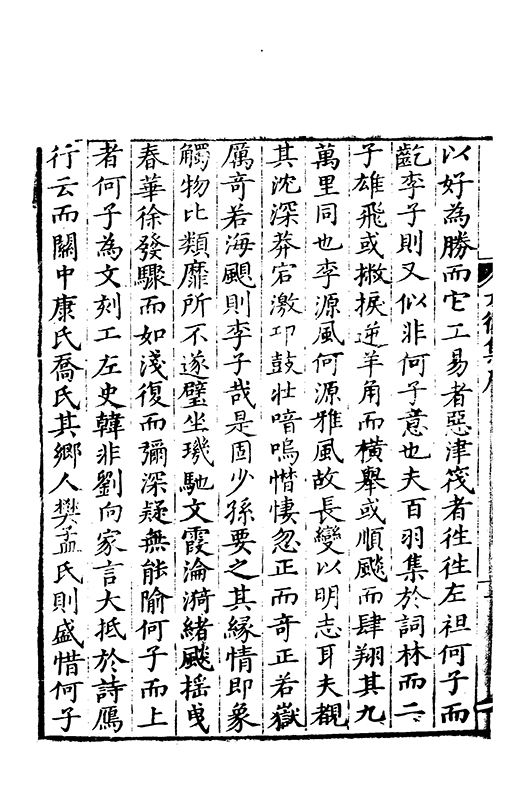 以好為勝而它工易者惡津筏者往往左袒何子而
齕李子則又似非何子意也夫百羽集於詞林而二
子雄飛或擻捩逆羊角而橫舉或順飈而肆翔其九
萬里同也李源風何源雅風故長變以明志耳夫覩
其沈深莽宕激卬鼓壯喑嗚憯悽忽正而奇正若嶽
厲奇若海颶則李子哉是固少孫要之其緣情即象
觸物比類靡所不遂璧坐璣馳文霞淪漪緒飈搖曳
春華徐發驟而如淺復而彌深疑無能隃何子而上
者何子為文刻工左史韓非劉向家言大抵於詩鴈
行云而關中康氏喬氏其鄉人樊氏孟氏則盛惜何子